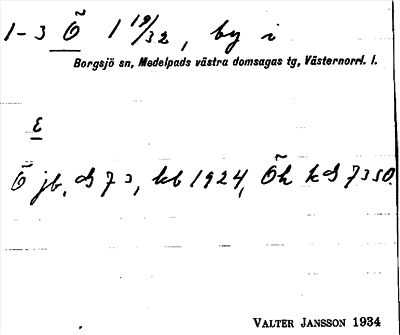 1-3 Ö 1 19/32, by i
Borgsjö sn, Medelpads västra domsagas tg, Västernorrl. l.
E
Ö jb. dS 73, kb 1924, Öh kd 7350.
VALTER JANSSON 1934